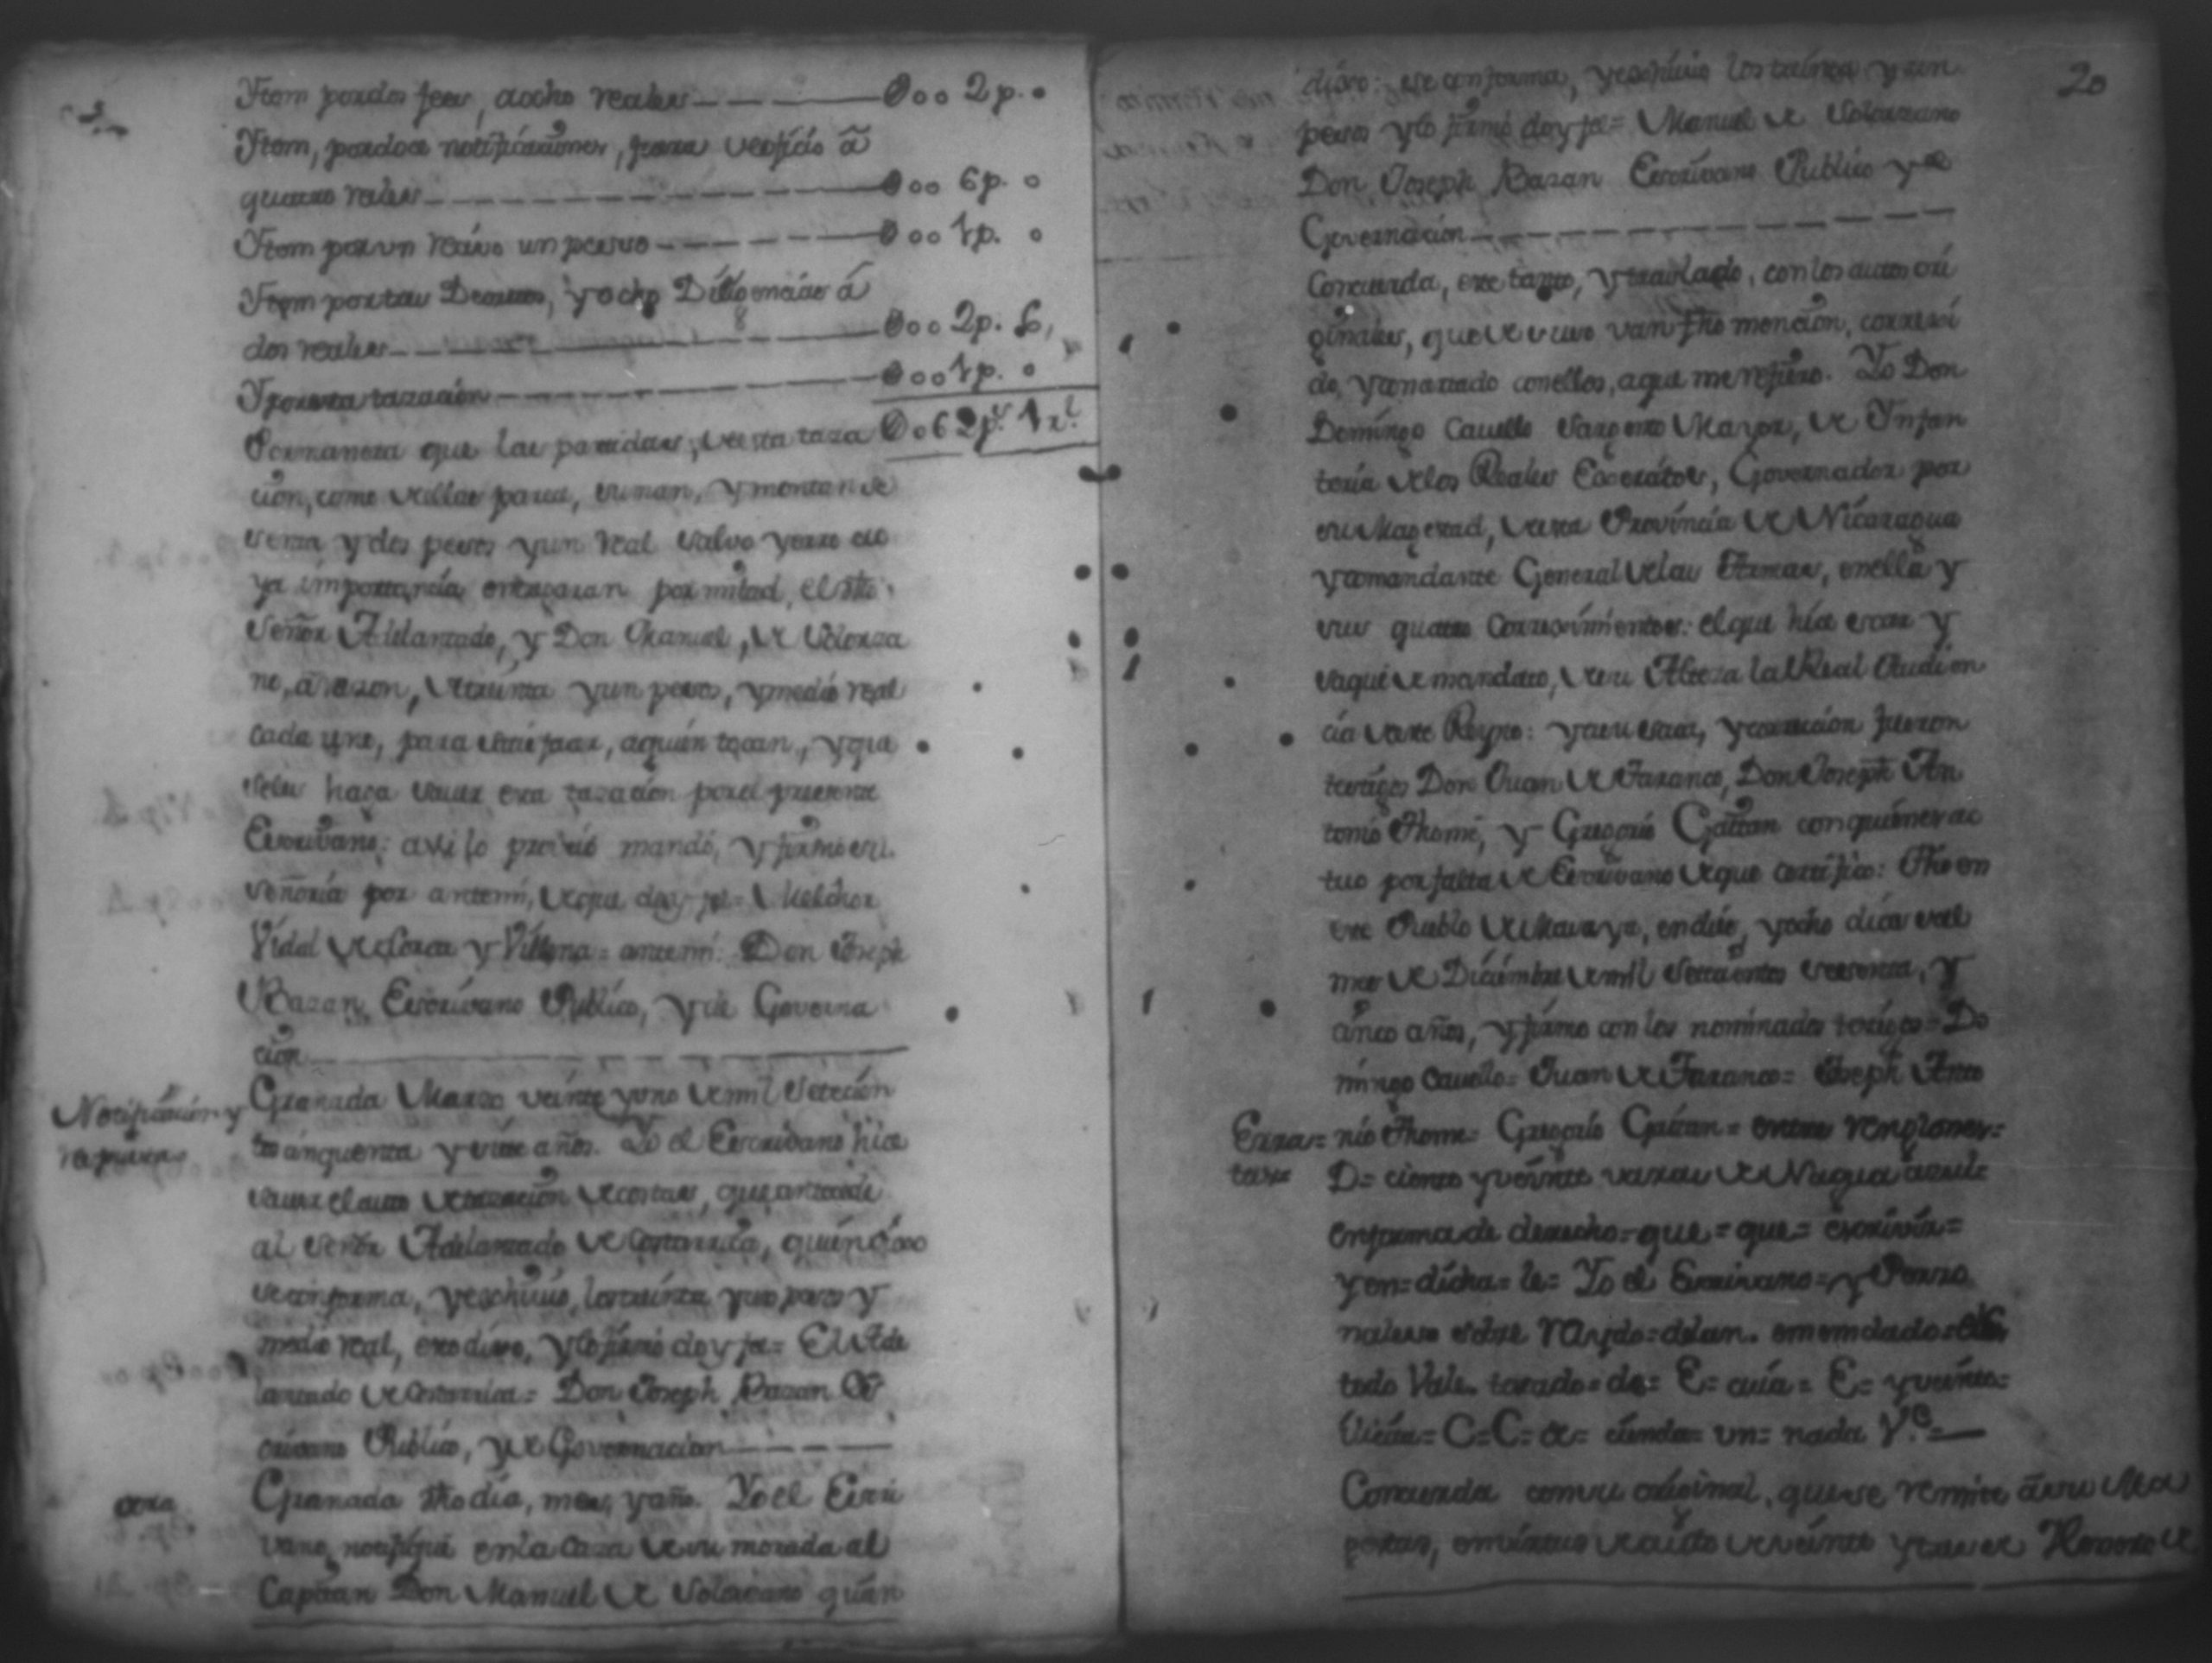 Ytem por dos fees, a ocho reales 0002p. 0
Ytem, por doce notificaciones, fuera de oficio â
quatro reales 0006p. 0
Ytem por un reciuo un pesso 0001p. 0
Ytem por tres Decretos, y ocho Diligencias â
dos reales 0002p. 6,
Y por esta tazacion 0001p. 0
Por manera que las partidas, de esta taza 0062p.s 1r.l
cion, como de ellas parece, suman, y montan se
senta y dos pesos y un real salvo yerro cu
ya importancia enteraran por mitad, el dho.
Señor Adelantado, y Don Manuel, de Solorza
no, â razon, de treinta y un pesos, y medio real
cada uno, para satisfacer, a quien tocan, y que
se les haga sauer esta tazacion por el presente
Escribano; asi lo proveió mandó, y firmó su
Señoria por ante mi, de que doy fe = Melchor
Vidal de Lorca y Villena = ante mi: Don Joseph
Bazan Escrivano Publico, y de Governa
cion
Notificacion y
respuesta
Granada Marzo veinte y uno de mil Setecien
tos cinquenta y siete años. Yo el Escribano hice
sauer el auto de tazacion de costas, que antecede
al Señor Adelantado de Costarrica, quien dixo
se conforma, y exhiuió, los treinta y un pesos y
medio real, esto dixo, y lo firmó doy fe = El Ade
lantado de Costarrica = Don Joseph Bazan Es
crivano Publico, y de Governacion
otra
Granada dho dia, mes, y año. Yo el Escri
vano, notifiqué en la Casa de su morada al
Capitan Don Manuel de Solorzano quien
20
dixo: se conforma, y exhiuio los treinta y un
pesos y lo firmó doy fe = Manuel de Solorzano
Don Joseph Bazan Escrivano Publico y de
Governacion
Concuerda, este tanto, y traslado, con los autos ori
ginales, que de suso van fha mencion, correxi
do, y consertado con ellos, a que me refiero. Yo Don
Domingo Cauello Sargento Mayor, de Ynfan
teria de los Reales Exercitos, Governador por
su Magestad, de esta Provincia de Nicaragua
y comandante General de las Armas, en ella y
sus quatro Correximientos: el que hice sacar y
saqué de mandato, de su Alteza la Real Audien
cia de este Reyno: y a su saca, y correccion fueron
testigos Don Juan de Taranco, Don Joseph An
tonio Thome, y Gregorio Gaitan con quienes ac
tuo por falta de Escrivano de que certifico: Fho en
este Pueblo de Masaya, en diez, y ocho dias del
mes de Diciembre de mil Setecientos sesenta, y
cinco años, y firmo con los nominados testigos = Do
mingo Cauello = Juan de Taranco = Joseph Anto
nio Thome = Gregorio Gaitan = entre renglones =
D = ciento y veinte varas de Nagua azul =
en forma de derecho = que = que = escrivia =
y en = dicha = le = Yo el Escrivano = y Porro
todo Vale. testado = de = E = cuia = E = y veinte =
C = C = a = un = nada V.e =
Concuerda con su original, que se remite â su Ma
gestad, en virtud de auto de veinte y tres de